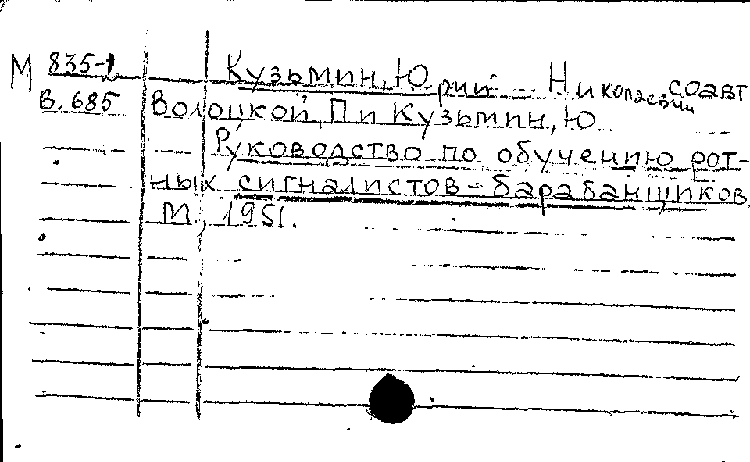 М 835-1 Кузьмин, Юрий Николаевич соавт
В.685 Волоцкой, П и Кузьмин, Ю
Руководство по обучению рот-
ных сигналистов-барабанщиков
М, 1951.